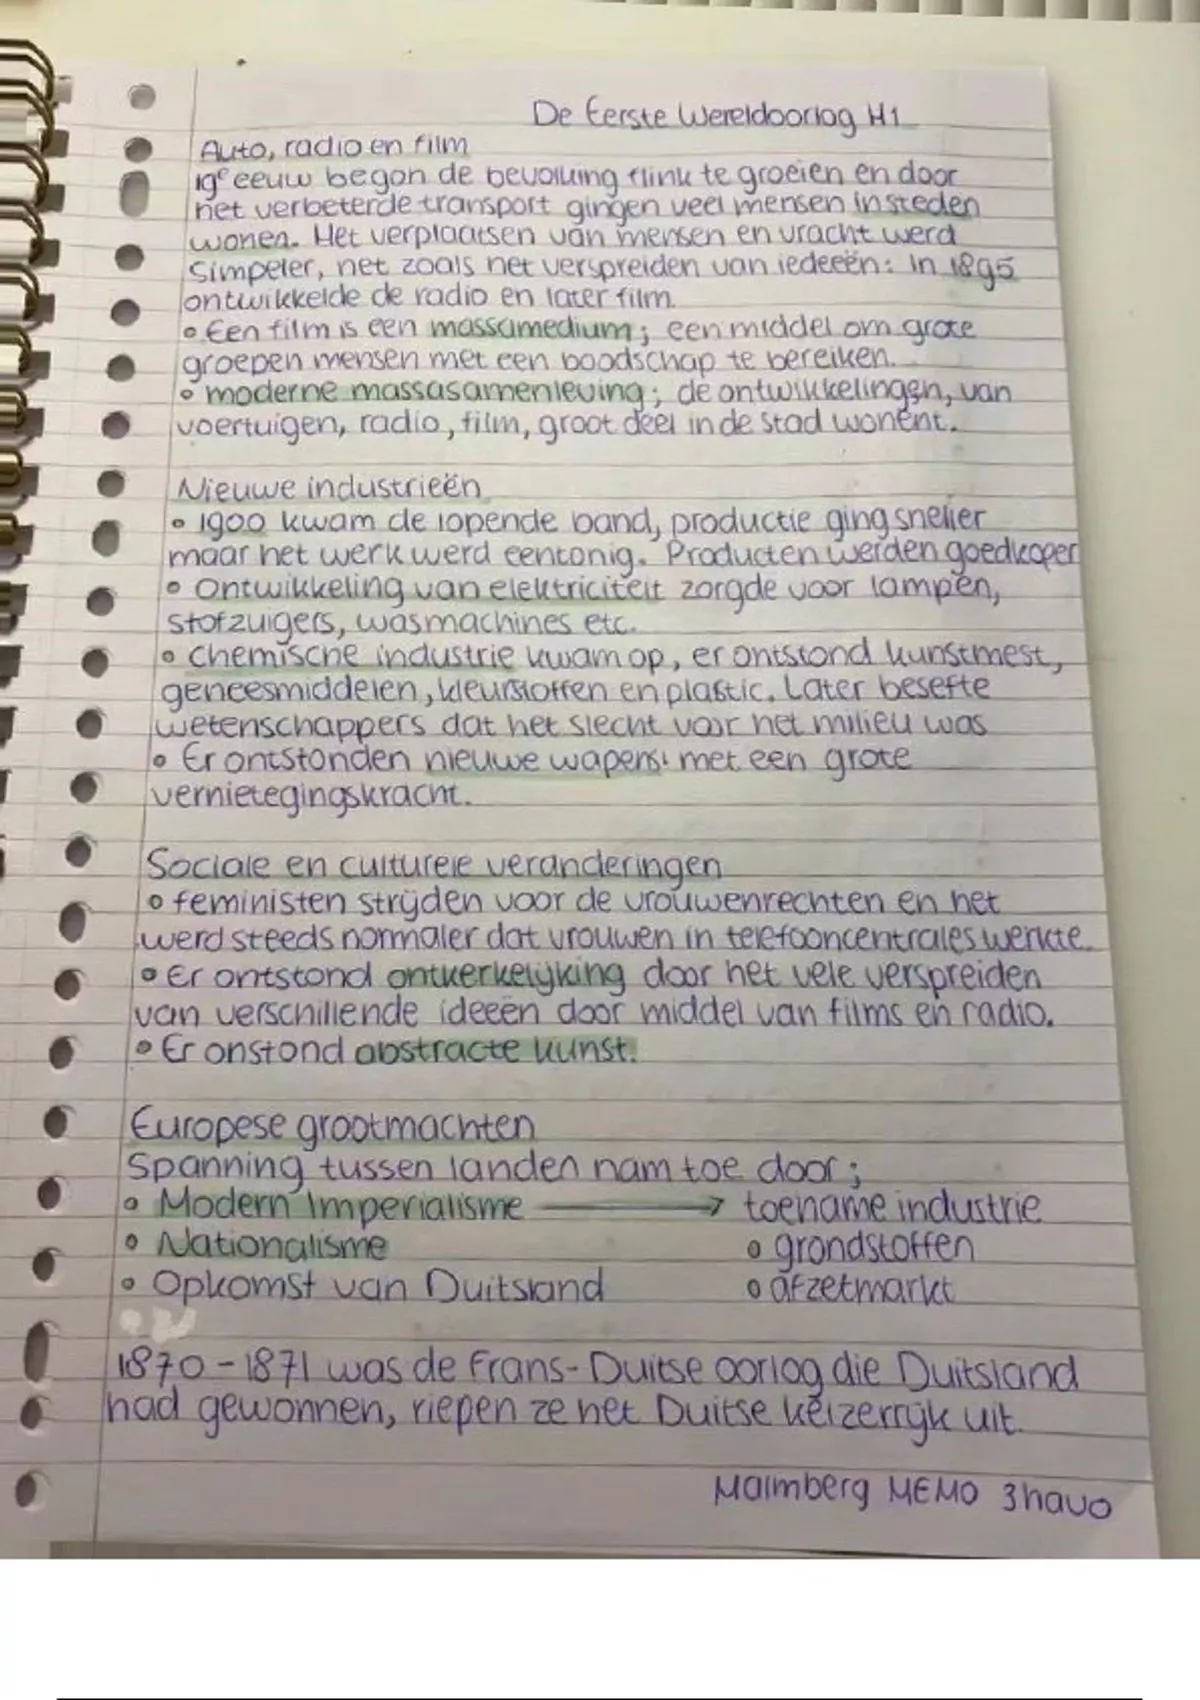 De Eerste Wereldoorlog H1
Auto, radio en film
19e eeuw begon de bevolking flink te groeien en door
het verbeterde transport gingen veel mensen in steden
wonen. Het verplaatsen van mensen en vracht werd
simpeler, net zoals het verspreiden van iedeeën: in 1895
ontwikkelde de radio en later film.
• Een film is een massamedium; een middel om grote
groepen mensen met een boodschap te bereiken.
• moderne massasamenleving; de ontwikkelingen, van
voertuigen, radio, film, groot deel in de stad wonent.
Nieuwe industrieën
• 1900 kwam de lopende band, productie ging sneller
maar het werk werd eentonig. Producten werden goedkoper
• Ontwikkeling van elektriciteit zorgde voor lampen,
stofzuigers, wasmachines etc.
• chemische industrie kwam op, er ontstond kunstmest,
geneesmiddelen, kleurstoffen en plastic. Later besefte
wetenschappers dat het slecht voor het milieu was
• Er ontstonden nieuwe wapens: met een grote
vernietegingskracht.
Sociale en culturele veranderingen
• feministen strijden voor de vrouwenrechten en het
werd steeds normaler dat vrouwen in telefooncentrales werkte.
• Er ontstond ontkerkelijking door het vele verspreiden
van verschillende ideeën door middel van films en radio.
• Er onstond abstracte kunst.
Europese grootmachten
Spanning tussen landen nam toe door;
• Modern Imperialisme → toename industrie
• Nationalisme • grondstoffen
• Opkomst van Duitsland • afzetmarkt
1870 - 1871 was de Frans-Duitse oorlog die Duitsland
had gewonnen, riepen ze het Duitse keizerrijk uit.
Malmberg MEMO 3havo